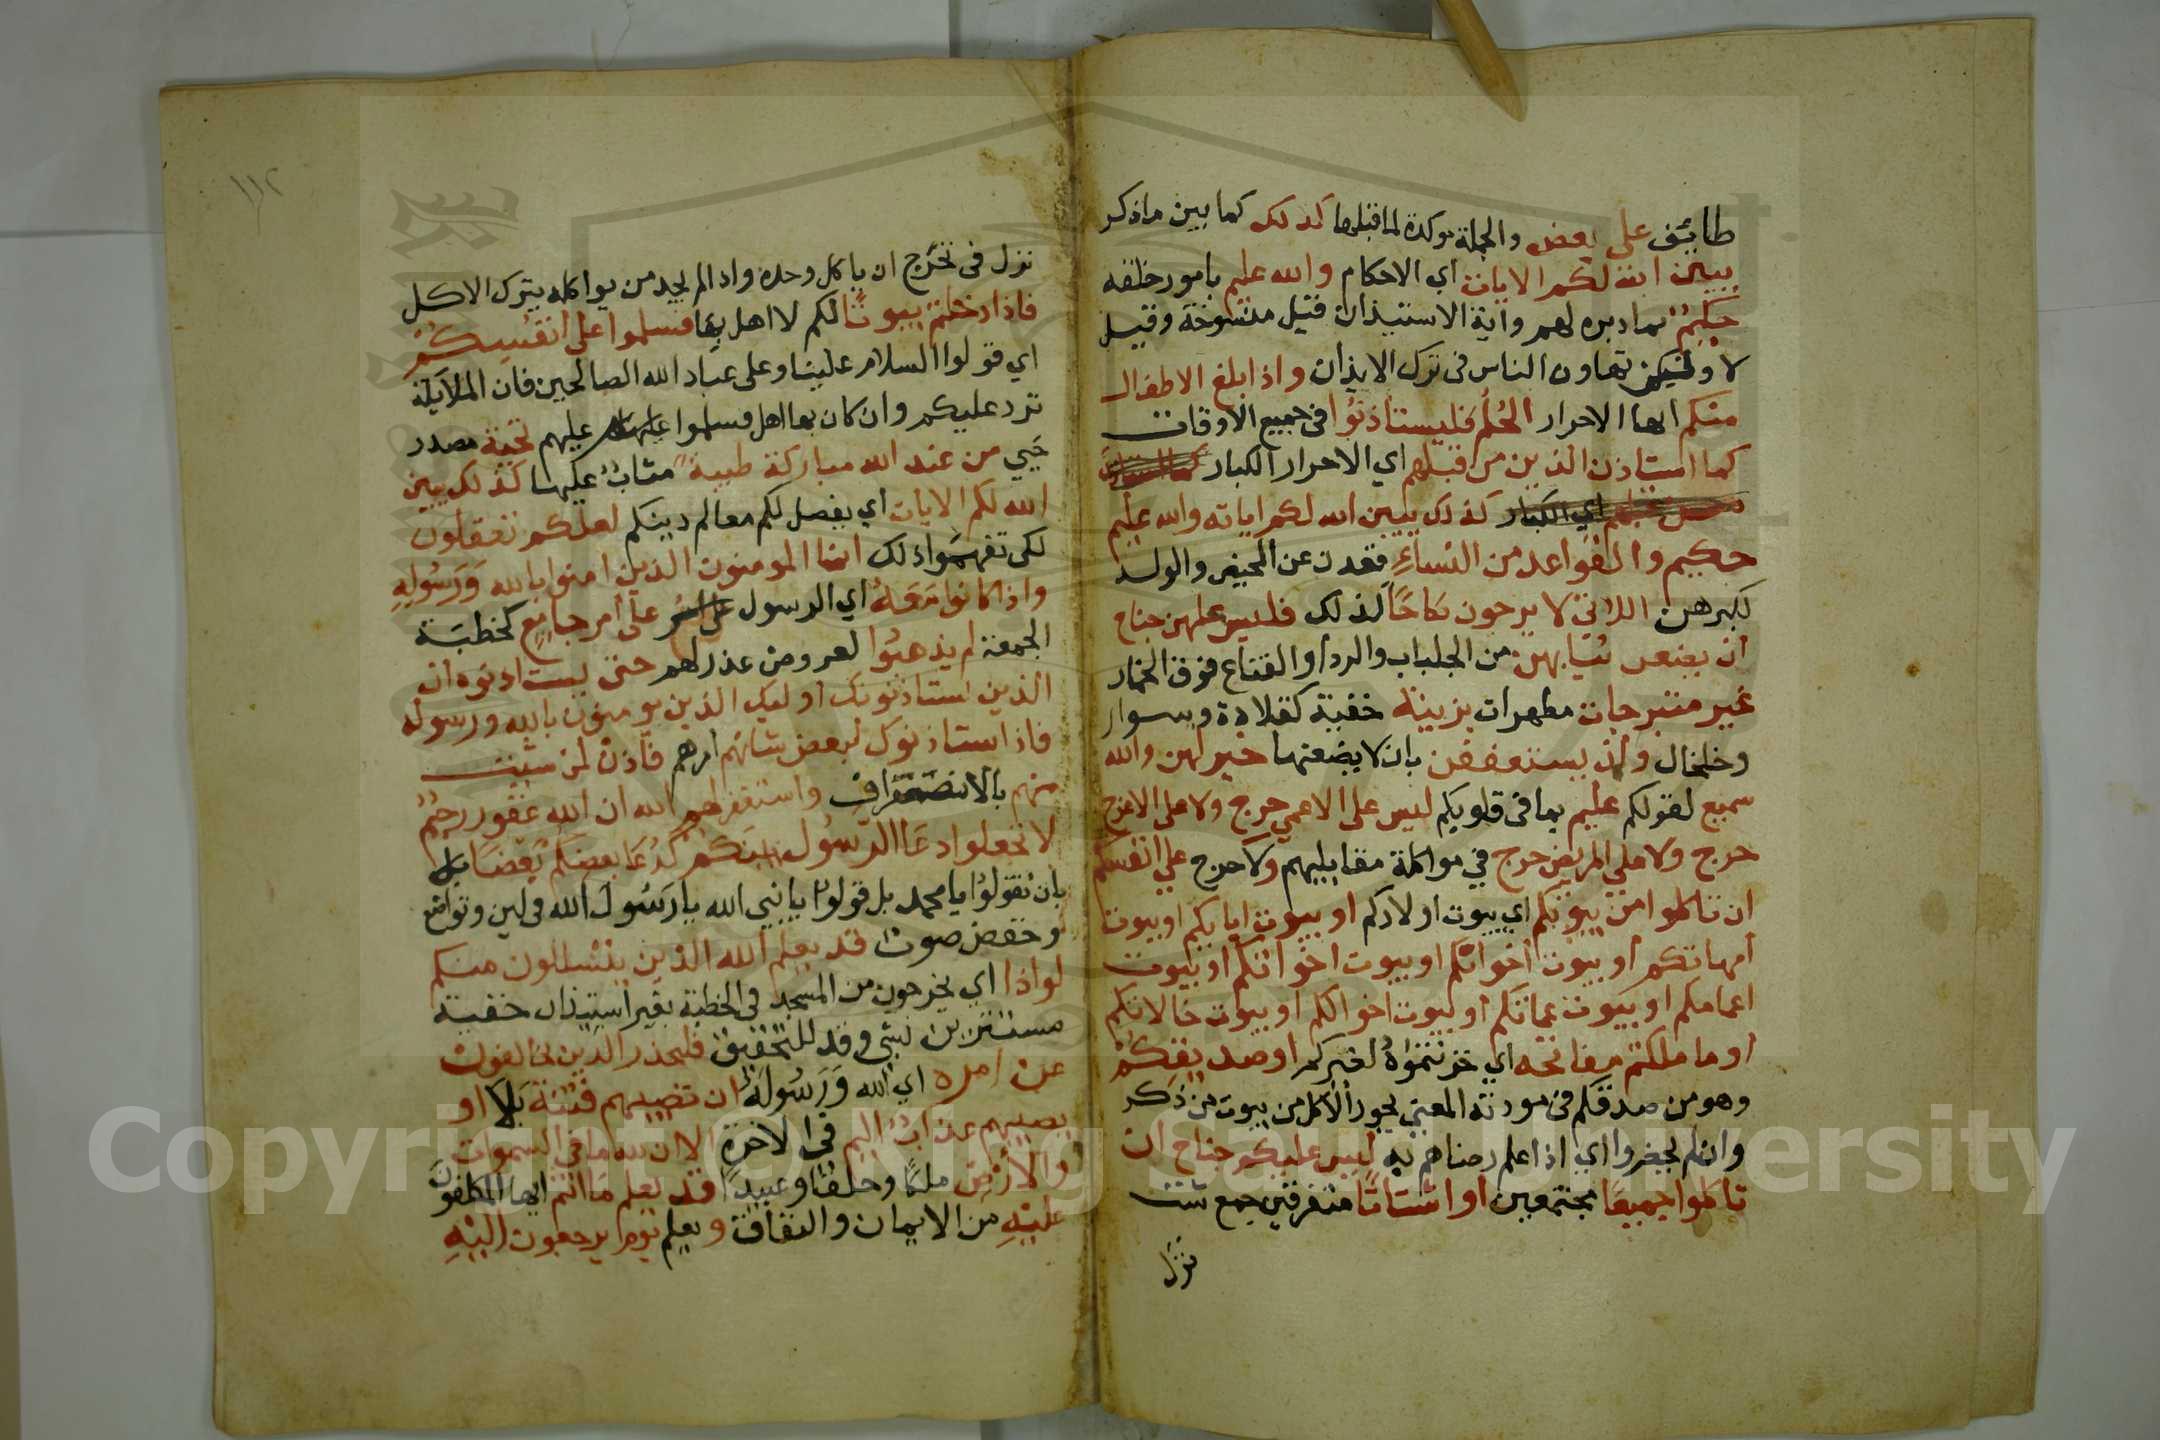 طايف على بعض والجملة موكدة لما قبلها كذلك كما بين ماذكر
يبين الله لكم الايات اي الاحكام والله عليم بامور خلقه
حكيم بمادبره لهم واية الاستيذان قيل منسوخة وقيل
لا ولكن تهاون الناس في ترك الايذان واذا بلغ الاطفال
منكم ايها الاحرار الحُلُم فليستاذنوا في جميع الاوقات
كما استاذن الذين من قبلهم اي الاحرار الكبار
كذلك يبين الله لكم اياته والله عليم
حكيم والقواعد من النساءِ قعدن عن الحيض والولد
لكبرهن اللاتي لا يرجون نكاحًا لذلك فليس عليهن جناح
ان يضعن ثيابهن من الجلباب والردا والقناع فوق الخمار
غير متبرجات مظهرات بزينة خفية كقلادة وسوار
وخلخال وان يستعففن بان لا يضعنها خير لهن والله
سميع لقولكم عليم بما في قلوبكم ليس على الاعمي حرج ولا على الاعرج
حرج ولا على المريض حرج في مواكلة مقابليهم ولا حرج علي انفسكم
ان تاكلوا من بيوتكم اي بيوت اولادكم او بيوت ابايكم او بيوت
امهاتكم او بيوت اخوانكم او بيوت اخواتكم او بيوت
اعمامكم او بيوت عماتكم او بيوت اخوالكم او بيوت خالاتكم
او ما ملكتم مفاتحه اي خزنتموه لغيركم او صديقكم
وهو من صدقكم في مودته المعني يجوز الاكل من بيوت من ذكر
وان لم يحضروا اي اذا علم رضاهم به ليس عليكم جناح ان
تاكلوا جميعًا مجتمعين او اشتاتًا متفرقين جمع شت
نزل
١١٢
نزل في تحرج ان ياكل وحده واذا لم يجد من يواكله يترك الاكل
فاذا دخلتم بيوتًا لكم لا اهل بها فسلموا على انفسكم
اي قولوا السلام علينا وعلى عباد الله الصالحين فان الملايكة
ترد عليكم وان كان بها اهل فسلموا عليهم تحية مصدر
حيي من عند الله مباركة طيبة مثاب عليها كذلك يبين
الله لكم الايات اي يفصل لكم معالم دينكم لعلكم تعقلون
لكي تفهموا ذلك انما المومنون الذين امنوا بالله وَرَسُولِهِ
واذا كانوا مَعَهُ اي الرسول على امر جامع كخطبة
الجمعة لم يذهبوا لعروض عذر لهم حتى يستاذنوه ان
الذين يستاذنونك اوليك الذين يومنون بالله ورسوله
فاذا استاذنوك لبعض شانهم امرهم فاذن لمن شيت
منهم بالانصراف واستغفر لهم الله ان الله غفور رحيم
لا تجعلوا دعا الرسُول بينكم كدُعا بعضكم بَعْضًا
بان تقولوا يا محمد بل قولوا يا نبي الله يا رَسُولَ الله في لين وتواضع
وخفض صوت قد يعلم الله الذين يتسللون منكم
لواذا اي يخرجون من المسجد في الخطبة بغير استيذان خفية
مستترين بشي وقد للتحقيق فليحذر الذين يخالفون
عن امره اي الله وَرَسُوله ان تصيبهم فتنة بَلا او
يصيبهم عذاب اليم في الاخرة الا ان لله ما في السموات
والارض ملكا وخلقا وعبيدا قد يعلم ما انتم ايها المكلفون
عليْهِ من الايمان والنفاق و يعلم يوم يرجعون اليْهِ
Copyright © King Saud University